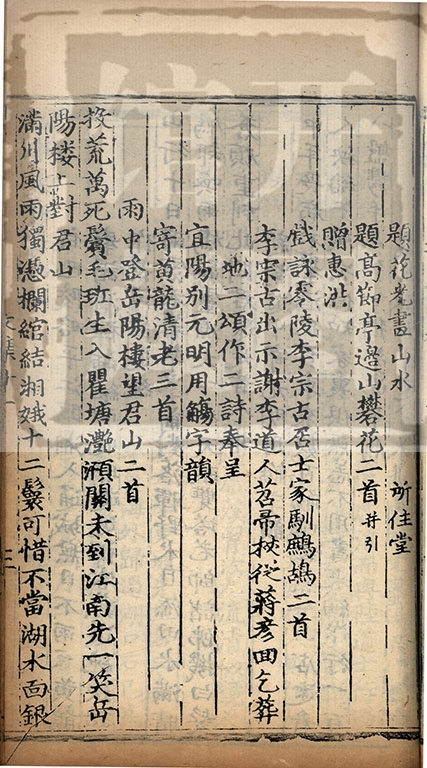 題花光畫山水　所住堂
題高節亭邊山礬花二首并引
贈惠洪
戲詠零陵李宗古居士家馴鷓鴣二首
李宗古出示謝李道人苕帚杖從蔣彦回乞葬
地二頌作二詩奉呈
宜陽別元明用觴字韻
寄黄龍清老三首
雨中登岳陽樓望君山二首
投荒萬死鬢毛班生入瞿塘灧澦關未到江南先一笑岳
陽楼上對君山
滿川風雨獨憑欄綰結湘娥十二鬟可惜不當湖水面銀